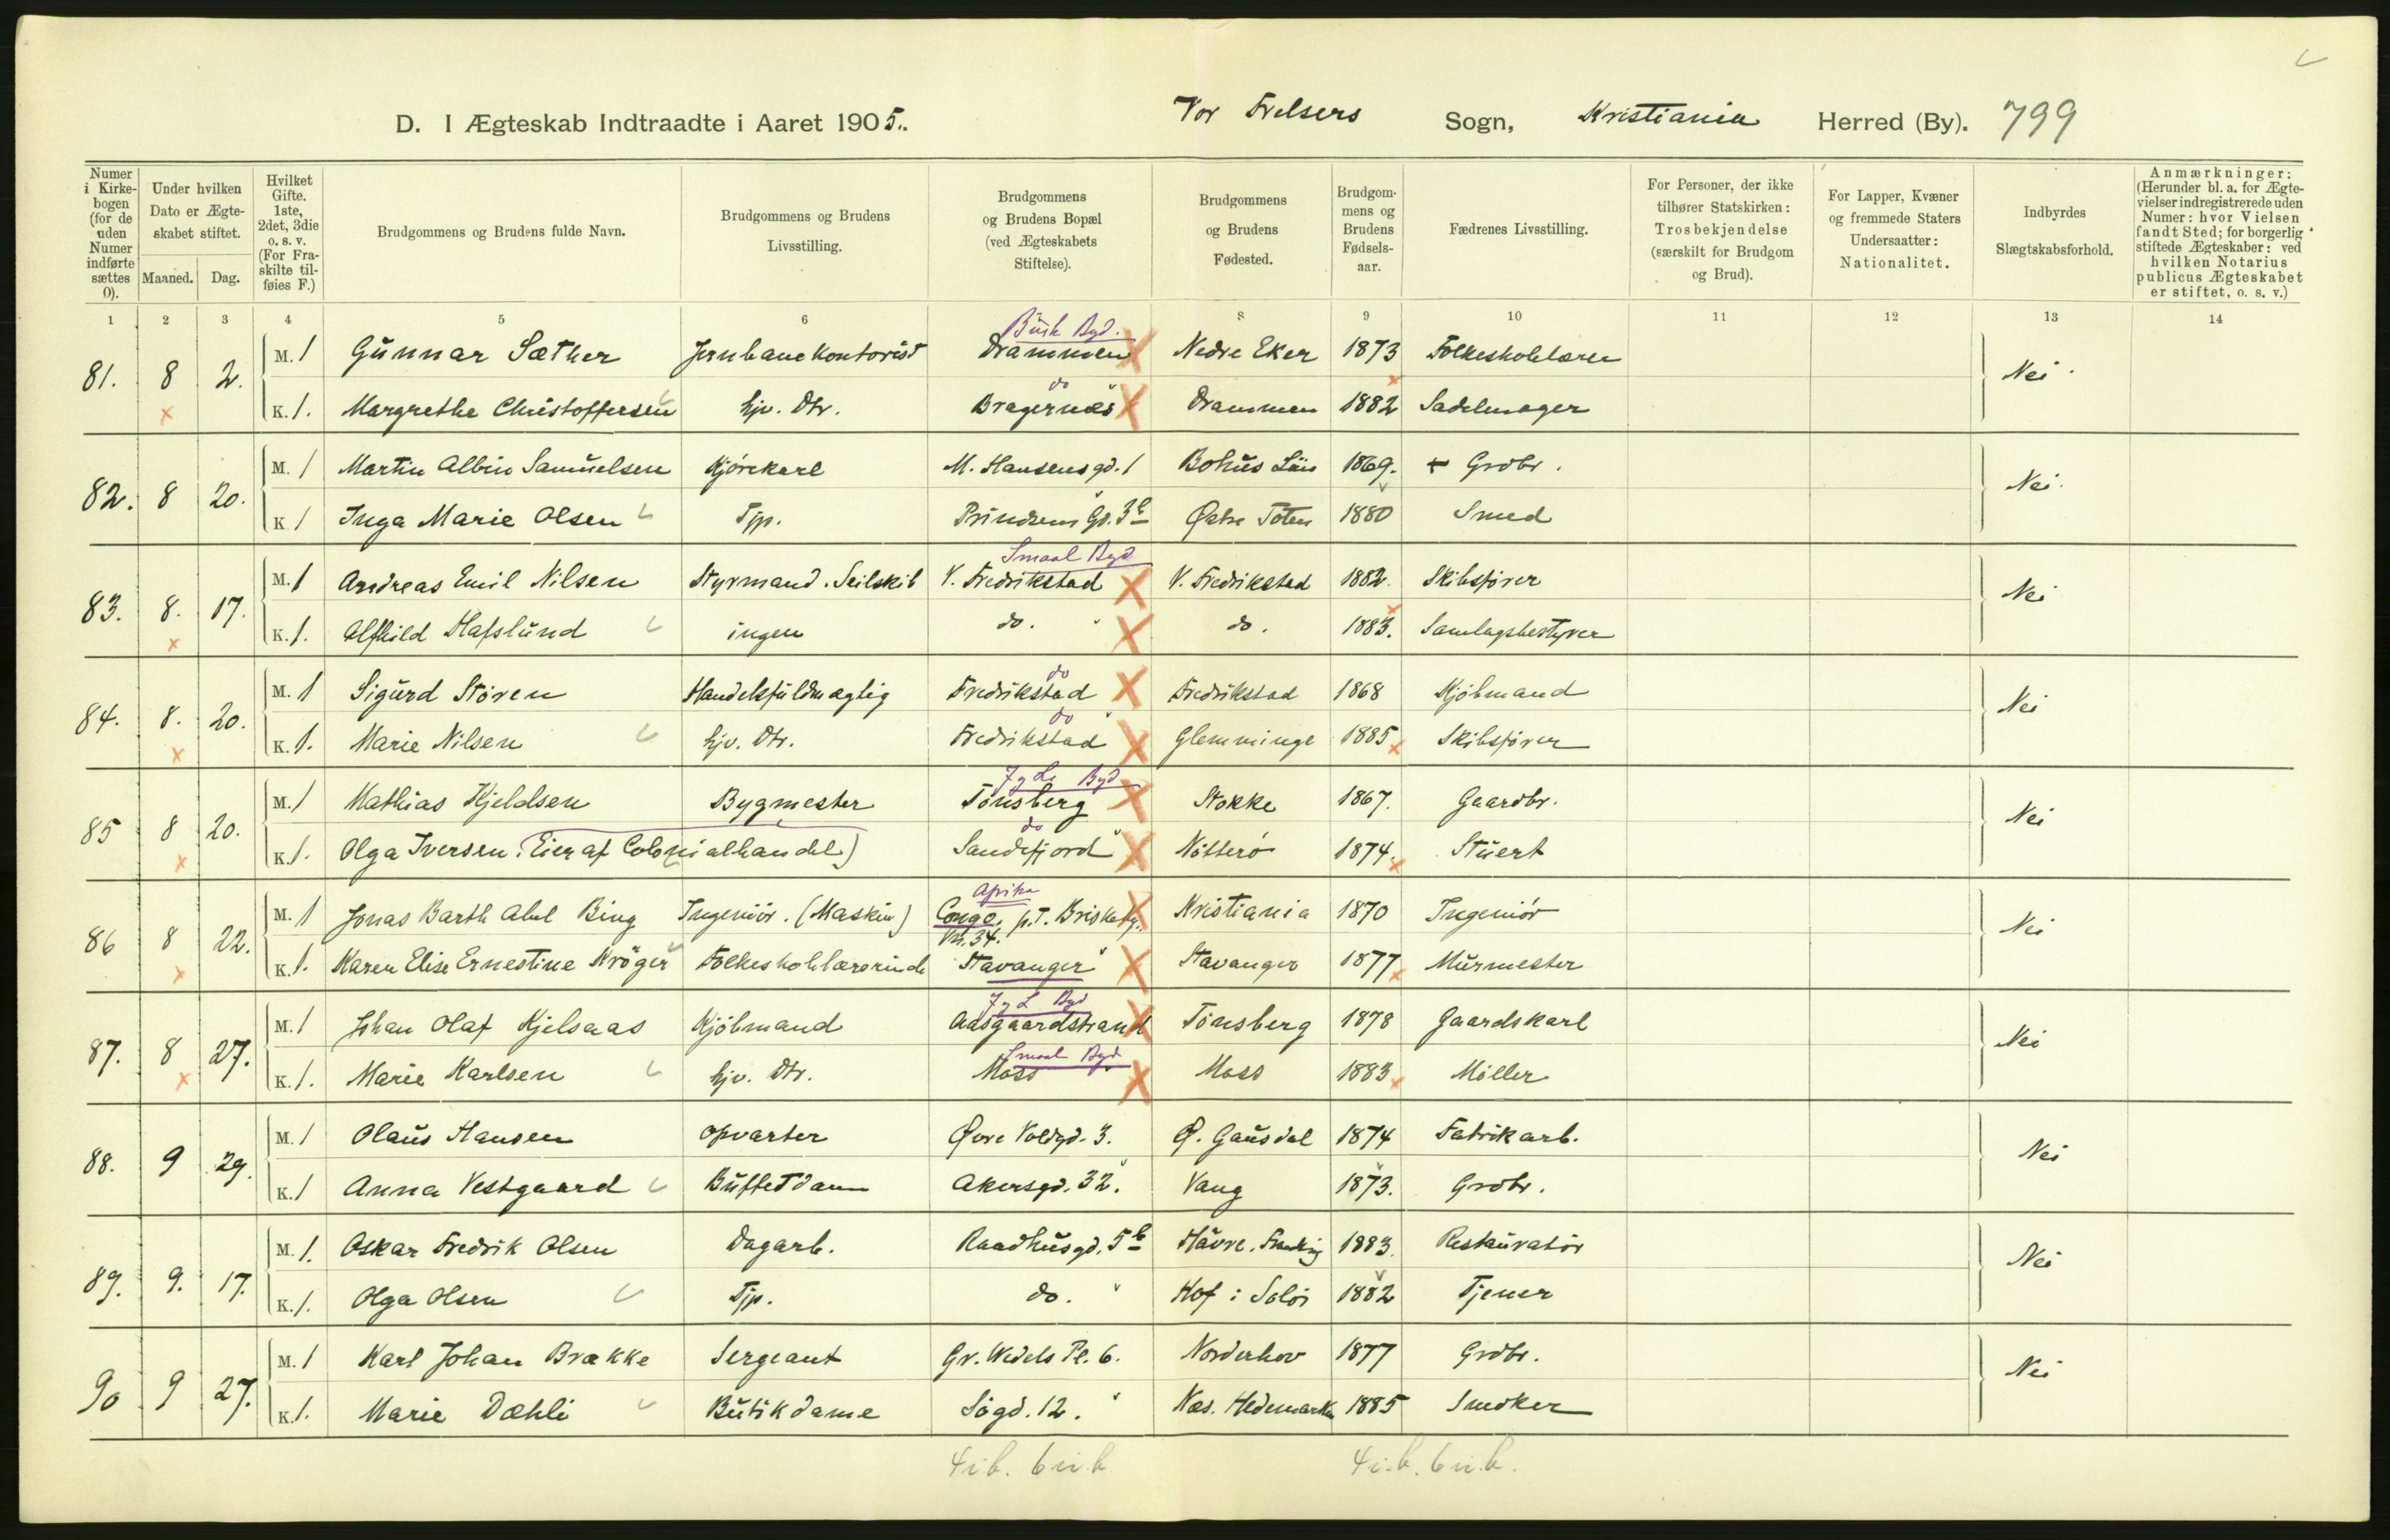 D. I Ægteskab Indtraadte i Aaret 1905.
Vor Frelsers Sogn, Kristiania Herred (By). 799
Numer i Kirkebogen (for de uden Numer indførte sættes 0).
Under hvilken Dato er Ægteskabet stiftet.
Maaned. Dag.
Hvilket Gifte. 1ste, 2det, 3die o. s. v. (For Fraskilte tilføies F.)
Brudgommens og Brudens fulde Navn.
Brudgommens og Brudens Livsstilling.
Brudgommens og Brudens Bopæl (ved Ægteskabets Stiftelse).
Brudgommens og Brudens Fødested.
Brudgommens og Brudens Fødselsaar.
Fædrenes Livsstilling.
For Personer, der ikke tilhører Statskirken: Trosbekjendelse (særskilt for Brudgom og Brud).
For Lapper, Kvæner og fremmede Staters Undersaatter: Nationalitet.
Indbyrdes Slægtskabsforhold.
Anmærkninger: (Herunder bl. a. for Ægtevielser indregistrerede uden Numer: hvor Vielsen fandt Sted; for borgerlig stiftede Ægteskaber: ved hvilken Notarius publicus Ægteskabet er stiftet, o. s. v.)
1 2 3 4 5 6 8 9 10 11 12 13 14
Busk Byd.
81. 8 2. M. 1 Gunnar Sæther Jernbanekontorist Drammen Nedre Eker 1873 Folkeskolelærer Nei
do
K. 1. Margrethe Christoffersen hjv. Dtr. Bragernæs Drammen 1882 Sadelmager
82. 8 20. M. 1 Martin Albin Samuelsen Kjørekarl M. Hansens gd. 1 Bohus Län 1869. Grdbr. Nei
K. 1 Inga Marie Olsen Tjp. Prindsens Gd. 3 Østre Toten 1880 Smed
Smaal Byd
83. 8. 17. M. 1 Andreas Emil Nilsen Styrmand. Seilskib V. Fredrikstad V. Fredrikstad 1882. Skibsfører Nei
K. 1. Alfhild Hafslund ingen do. do. 1883. Samlagsbestyrer
do
84. 8. 20. M. 1 Sigurd Støren Handelsfuldmægtig Fredrikstad Fredrikstad 1868 Kjøbmand Nei
do
K. 1. Marie Nilsen hjv. Dtr. Fredrikstad Glemminge 1885 Skibsfører
J g L Byd
85 8 20. M. 1 Mathias Kjeldsen Bygmester Tønsberg Stokke 1867. Gaardbr. Nei
do
K. 1. Olga Iversen. (Eier af Colonialhandel) Sandefjord Nøtterø 1874. Stuert
Afrika
86 8 22. M. 1 Jonas Barth Abel Bing Ingeniör. (Maskin) Congo. p.T. Briskebyv. No. 34. Kristiania 1870 Ingeniör Nei
K. 1. Karen Elise Ernestine Krøger Folkeskolelærerinde Stavanger Stavanger 1877 Murmester
J g L Byd
87. 8 27. M. 1 Johan Olaf Kjelsaas Kjöbmand Aasgaardstrand Tønsberg 1878 Gaardskarl Nei
Smaal Byd
K. 1. Marie Karlsen hjv. Dtr. Moss Moss 1883 Møller
88. 9 29. M. 1 Olaus Hansen Opvarter Øvre Voldgd. 3. Ø. Gausdal 1874 Fabrikarb. Nei
K. 1 Anna Vestgaard Buffetdame Akersgd. 32. Vang 1873. Grdbr.
89. 9. 17. M. 1. Oskar Fredrik Olsen Dagarb. Raadhusgd. 5 b Håvre. Frankrig 1883. Restauratör Nei
K. 1. Olga Olsen Tjp. do. Hof i Solør 1882 Tjener
90 9 27. M. 1 Karl Johan Brække Sergeant Gr. Wedels Pl. 6. Norderhov 1877 Grdbr. Nei
K. 1. Marie Dæhli Butikdame Søgd. 12. Næs. Hedemarken 1885 Snedker
4 i.b. 6 u.b. 4 i.b. 6 u.b.